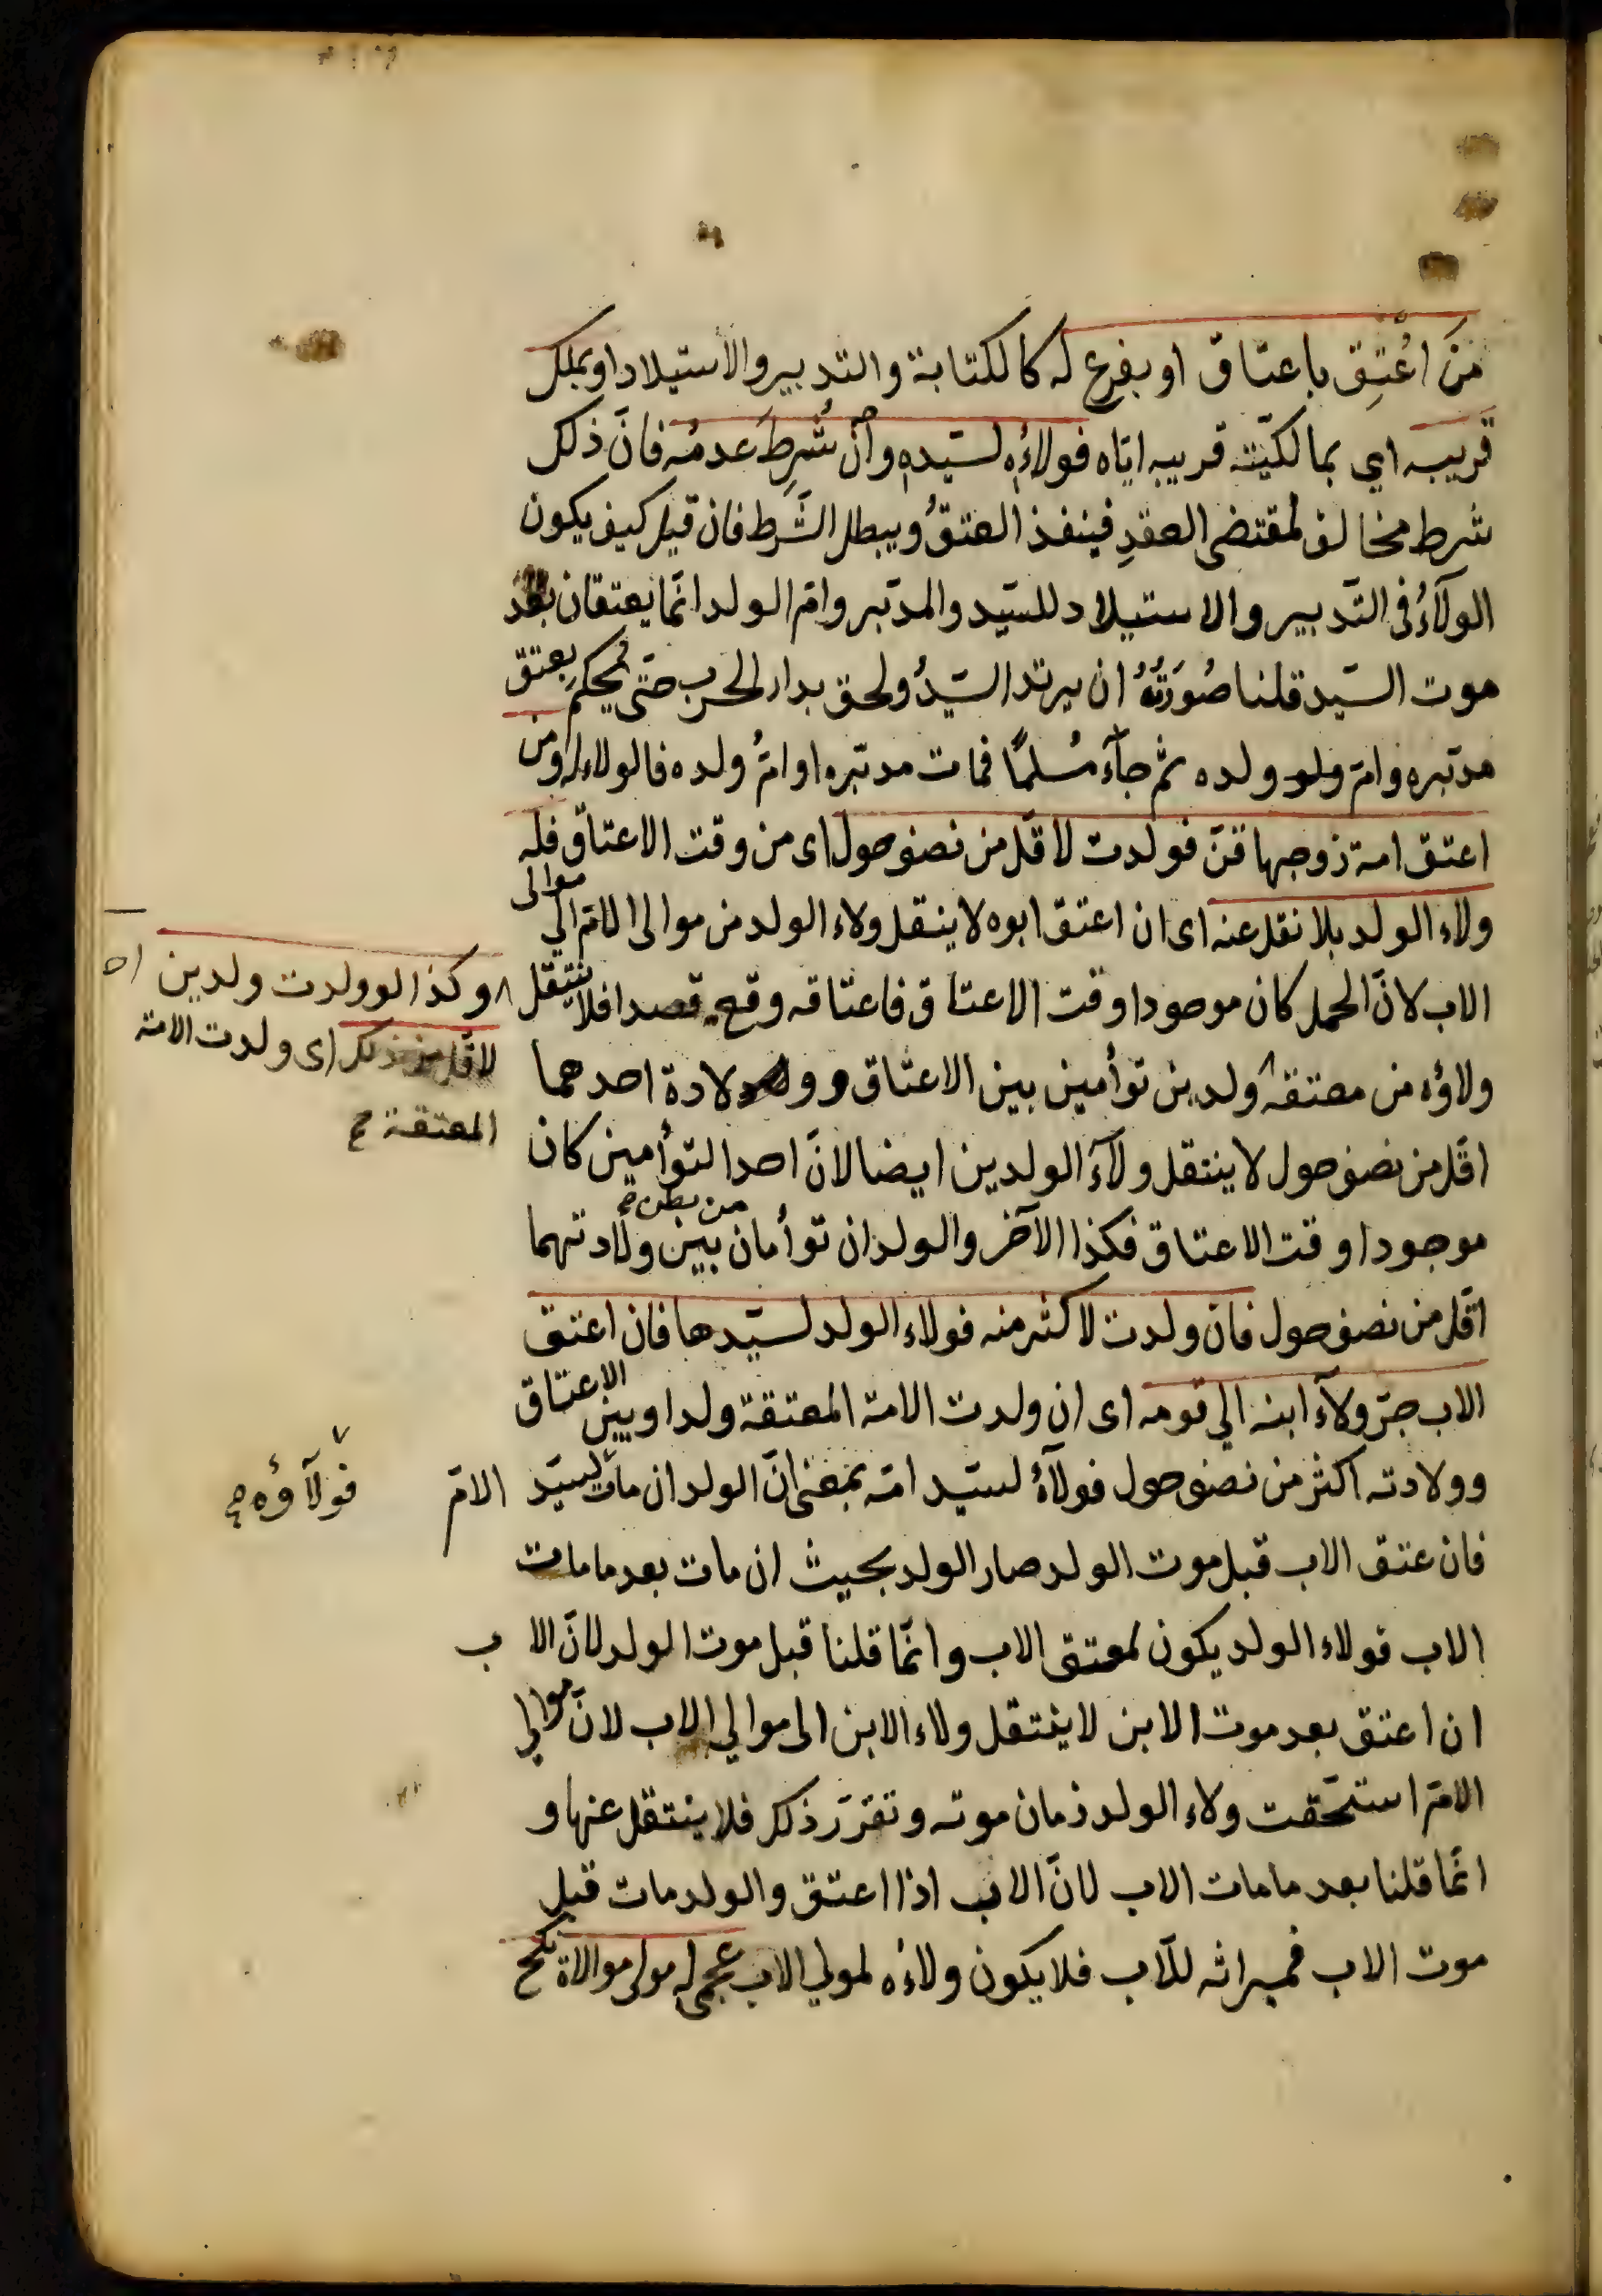 مَنْ اُعْتِقَ باعتاق او بفرع له كالكتابة والتدبير والاستيلاد او بملك
قريبه اي بمالكيّته قريبه ايّاه فولاؤه لسيّده وان شُرِطَ عدمُه فانّ ذلك
شرط مخالف لمقتضى العقدِ فينفذ العتقُ ويبطل الشَّرط فان قيل كيف يكون
الولآءُ فى التّدبير والاستيلاد للسّيد والمدبّر وامّ الولد انّما يعتقان بعد
موت السّيد قلنا صُورَتُهُ ان يرتد السّيدُ ولحق بدار الحرب حتّى يُحكم بعتق
مدبّره وامّ ولد ولده ثم جآء مُسلمًا فمات مدبّره او امُّ ولده فالولاء له ومن
اعتق امة زوجها قنّ فولدت لاقلّ من نصف حول اى من وقت الاعتاق فله
ولاء الولد بلا نقل عنه اى ان اعتق ابوه لا ينتقل ولاء الولد من موالى الامّ الى موالى
الاب لانّ الحمل كان موجودا وقت الاعتاق فاعتاقه وقع قصدا فلا ينتقل
ولاؤه من معتقه ولدين توأمين بين الاعتاق و وولادة احدهما
وكذا لو ولدت ولدين
لاقلّ من ذلك اى ولدت الامة
المعتقة صح
اقلّ من نصف حول لا ينتقل ولآءَ الولدين ايضا لانّ احد التوأمين كان
موجودا وقت الاعتاق فكذا الآخر والولدان توأمان من بطن بين ولادتهما
اقلّ من نصف حول فان ولدت لاكثر منه فولاء الولد لسيّدها فان اعتق
الاب جرّ ولآءَ ابنه الي قومه اى ان ولدت الامة المعتقة ولدا وبين الاعتاق
وولادته اكثر من نصف حول فولآءُ لسيّد امّه بمعنى انّ الولد ان مات لسيّد الامّ
فولآؤه صح
فان عتق الاب قبل موت الولد صار الولد بحيث ان مات بعد ما مات
الاب فولاء الولد يكون لمعتق الاب وانّما قلنا قبل موت الولد لانّ الاب
ان اعتق بعد موت الابن لا ينتقل ولاء الابن الى موالي الاب لانّ موالي
الامّ استحّقت ولاء الولد زمان موته وتقرّر ذلك فلا ينتقل عنها و
انّما قلنا بعد ما مات الاب لانّ الاب اذا اعتق والولد مات قبل
موت الاب فميراثه للاب فلا يكون ولاؤه لمولي الاب عجمى له مولى موالاة نكح